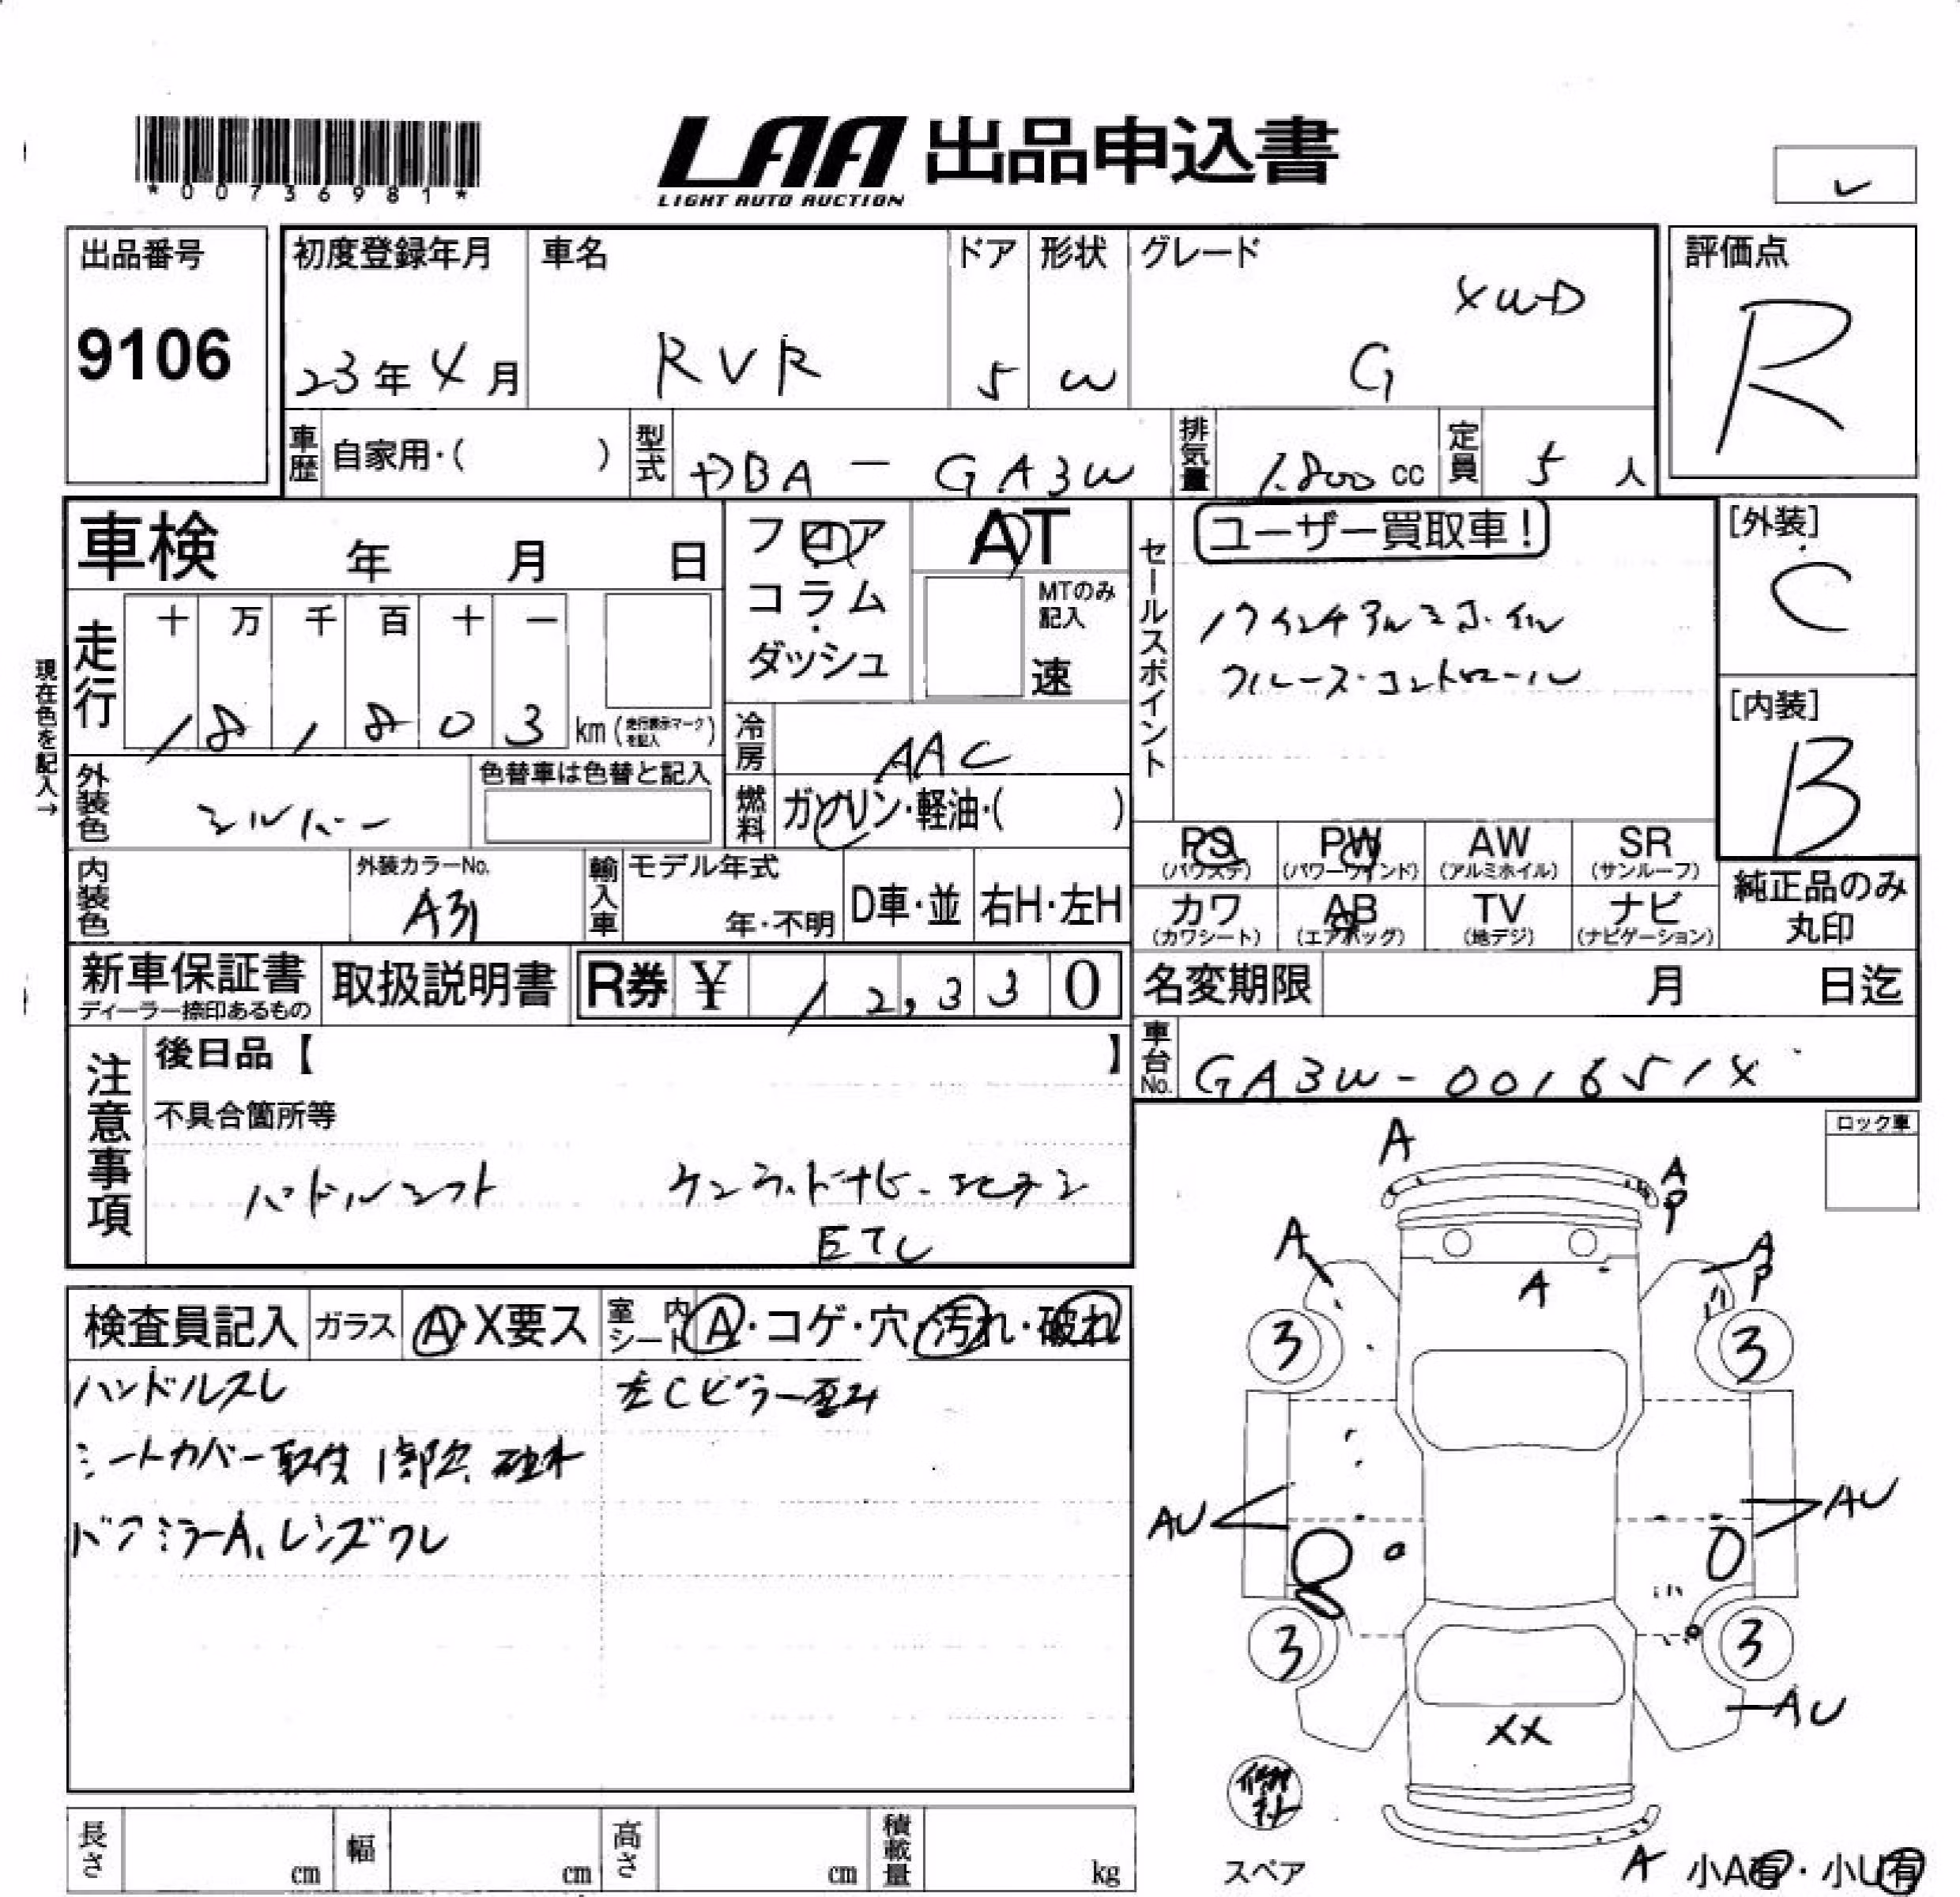 *00736981*
LAA 出品申込書
LIGHT AUTO AUCTION
レ
出品番号
9106
初度登録年月
23年4月
車名
RVR
ドア
5
形状
W
グレード
G
評価点
R
車歴
自家用・( )
型式
DBA-GA3W
排気量
1.800 cc
定員
5 人
車検 年 月 日
フロア
コラム
ダッシュ
AT
MTのみ
記入
速
セールスポイント
ユーザー買取車!
17インチアルミホイル
クルーズ・コントロール
[外装]
C
[内装]
B
現在色を記入→
走行
十 万 千 百 十 一
181803
km(走行表示マークを記入)
冷房
AAC
燃料
ガソリン・軽油・( )
外装色
シルバー
色替車は色替と記入
内装色
外装カラーNo.
A31
輸入車
モデル年式
年・不明
D車・並
右H・左H
PS
(パワステ)
PW
(パワーウインド)
AW
(アルミホイル)
SR
(サンルーフ)
カワ
(カワシート)
AB
(エアバッグ)
TV
(地デジ)
ナビ
(ナビゲーション)
純正品のみ
丸印
新車保証書
ディーラー捺印あるもの
取扱説明書
R券 ¥ 12,330
名変期限 月 日迄
車台No.
GA3W-001651X
注意事項
後日品【 】
不具合箇所等
パドルシフト
ETC
ロック車
検査員記入
ガラス
A・X要ス
室内シート
A・コゲ・穴・汚れ・破れ
ハンドルスレ
左Cピラー歪み
シートカバー取失 1部欠 破れ
ドアミラーA、レンズワレ
A
A
P
A
A
P
A
3
3
AU
AU
3
3
AU
XX
A
スペア
小A有・小U有
長さ cm
幅 cm
高さ cm
積載量 kg